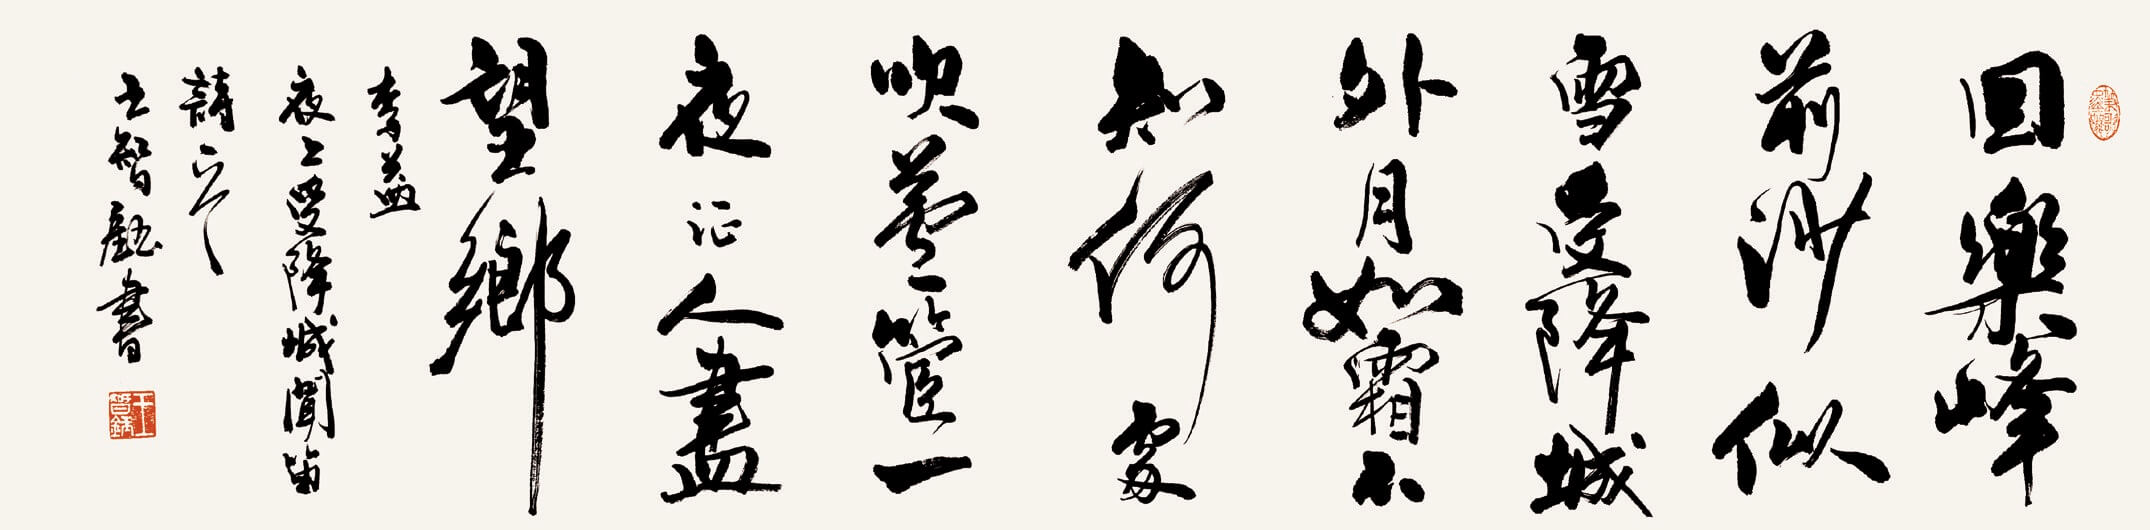 回樂峰
前沙似
雪受降城
外月如霜不
知何處
吹蘆管一
夜征人盡
望鄉
李益
夜上受降城聞笛
詩
王智書
王智